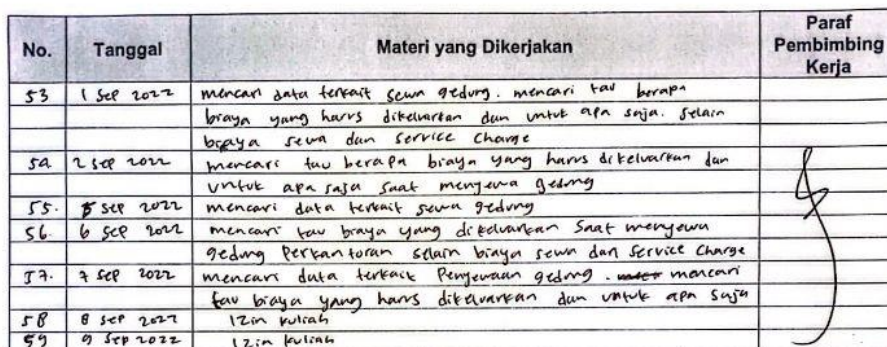 No. Tanggal Materi yang Dikerjakan Paraf Pembimbing Kerja
53 1 Sep 2022 mencari data terkait sewa gedung. mencari tau berapa
biaya yang harus dikeluarkan dan untuk apa saja. selain
biaya sewa dan service charge
54 2 sep 2022 mencari tau berapa biaya yang harus dikeluarkan dan
untuk apa saja saat menyewa gedung
55. 5 sep 2022 mencari data terkait sewa gedung
56. 6 sep 2022 mencari tau biaya yang dikeluarkan saat menyewa
gedung Perkantoran selain biaya sewa dan service charge
57. 7 sep 2022 mencari data terkait Penyewaan gedung. mencari
tau biaya yang harus dikeluarkan dan untuk apa saja
58 8 sep 2022 Izin kuliah
59 9 sep 2022 Izin kuliah